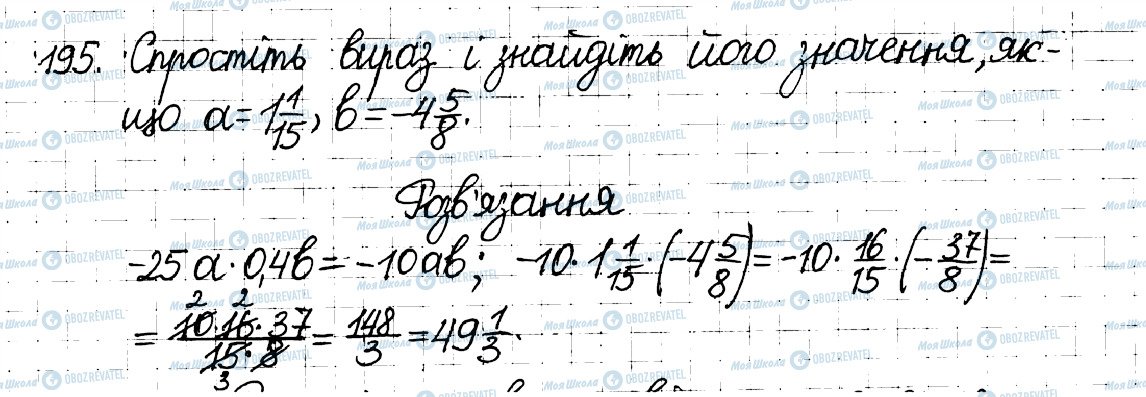 195. Спростіть вираз і знайдіть його значення, як-
що a = 1 1/15, b = -4 5/8.
Розв'язання
-25a · 0,4b = -10ab; -10 · 1 1/15 · (-4 5/8) = -10 · 16/15 · (-37/8) =
= 10 · 16 · 37 / 15 · 8 = 148/3 = 49 1/3.
2 2
3